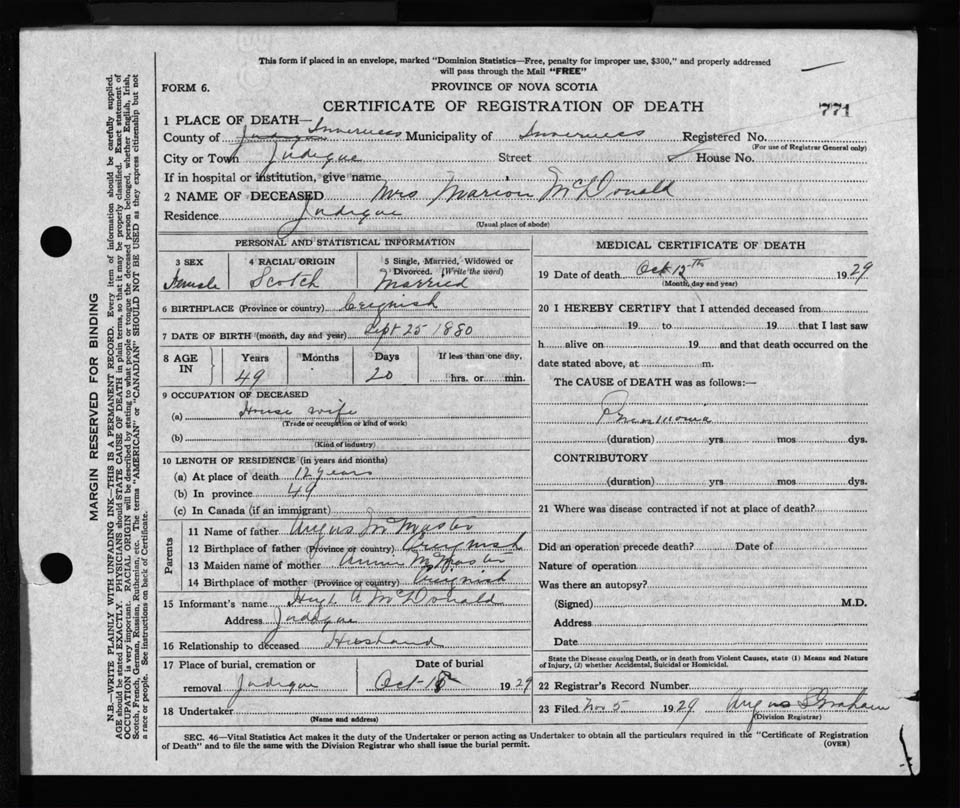 This form if placed in an envelope, marked "Dominion Statistics—Free, penalty for improper use, $300," and properly addressed
will pass through the Mail "FREE"
FORM 6.
PROVINCE OF NOVA SCOTIA
CERTIFICATE OF REGISTRATION OF DEATH
771
1 PLACE OF DEATH—
County of Inverness Municipality of Inverness Registered No.
(For use of Registrar General only)
City or Town Judique Street House No.
If in hospital or institution, give name
2 NAME OF DECEASED Mrs Marion McDonald
Residence Judique
(Usual place of abode)
PERSONAL AND STATISTICAL INFORMATION
3 SEX 4 RACIAL ORIGIN 5 Single, Married, Widowed or
Divorced. (Write the word)
Female Scotch Married
6 BIRTHPLACE (Province or country) Creignish
7 DATE OF BIRTH (month, day and year) Sept 25 1880
8 AGE IN Years Months Days If less than one day,
49 20 hrs. or min.
9 OCCUPATION OF DECEASED
(a) House wife
(Trade or occupation or kind of work)
(b)
(Kind of industry)
10 LENGTH OF RESIDENCE (in years and months)
(a) At place of death 12 years
(b) In province 49
(c) In Canada (if an immigrant)
Parents
11 Name of father Angus McMaster
12 Birthplace of father (Province or country) Creignish
13 Maiden name of mother Annie McMaster
14 Birthplace of mother (Province or country) Creignish
15 Informant's name Hugh A McDonald
Address Judique
16 Relationship to deceased Husband
17 Place of burial, cremation or Date of burial
removal Judique Oct 1929
18 Undertaker
(Name and address)
MEDICAL CERTIFICATE OF DEATH
19 Date of death Oct 12th 1929
(Month, day and year)
20 I HEREBY CERTIFY that I attended deceased from
19 to 19 that I last saw
h alive on 19 and that death occurred on the
date stated above, at m.
The CAUSE of DEATH was as follows:—
Pneumonia
(duration) yrs. mos. dys.
CONTRIBUTORY
(duration) yrs. mos. dys.
21 Where was disease contracted if not at place of death?
Did an operation precede death? Date of
Nature of operation
Was there an autopsy?
(Signed) M.D.
Address
Date
State the Disease causing Death, or in death from Violent Causes, state (1) Means and Nature
of Injury, (2) whether Accidental, Suicidal or Homicidal.
22 Registrar's Record Number
23 Filed Nov 5 1929 Angus S Graham
(Division Registrar)
SEC. 46—Vital Statistics Act makes it the duty of the Undertaker or person acting as Undertaker to obtain all the particulars required in the "Certificate of Registration
of Death" and to file the same with the Division Registrar who shall issue the burial permit.
(OVER)
MARGIN RESERVED FOR BINDING
N.B.—WRITE PLAINLY WITH UNFADING INK—THIS IS A PERMANENT RECORD. Every item of information should be carefully supplied.
AGE should be stated EXACTLY. PHYSICIANS should STATE CAUSE OF DEATH in plain terms, so that it may be properly classified. Exact statement of
OCCUPATION is very important. RACIAL ORIGIN will be described by stating to what people or tongue the deceased person belonged, whether English, Irish,
Scotch, French, German, Russian, Ruthenian, etc. The terms "AMERICAN" or "CANADIAN" SHOULD NOT BE USED as they express citizenship but not
a race or people. See instructions on back of Certificate.